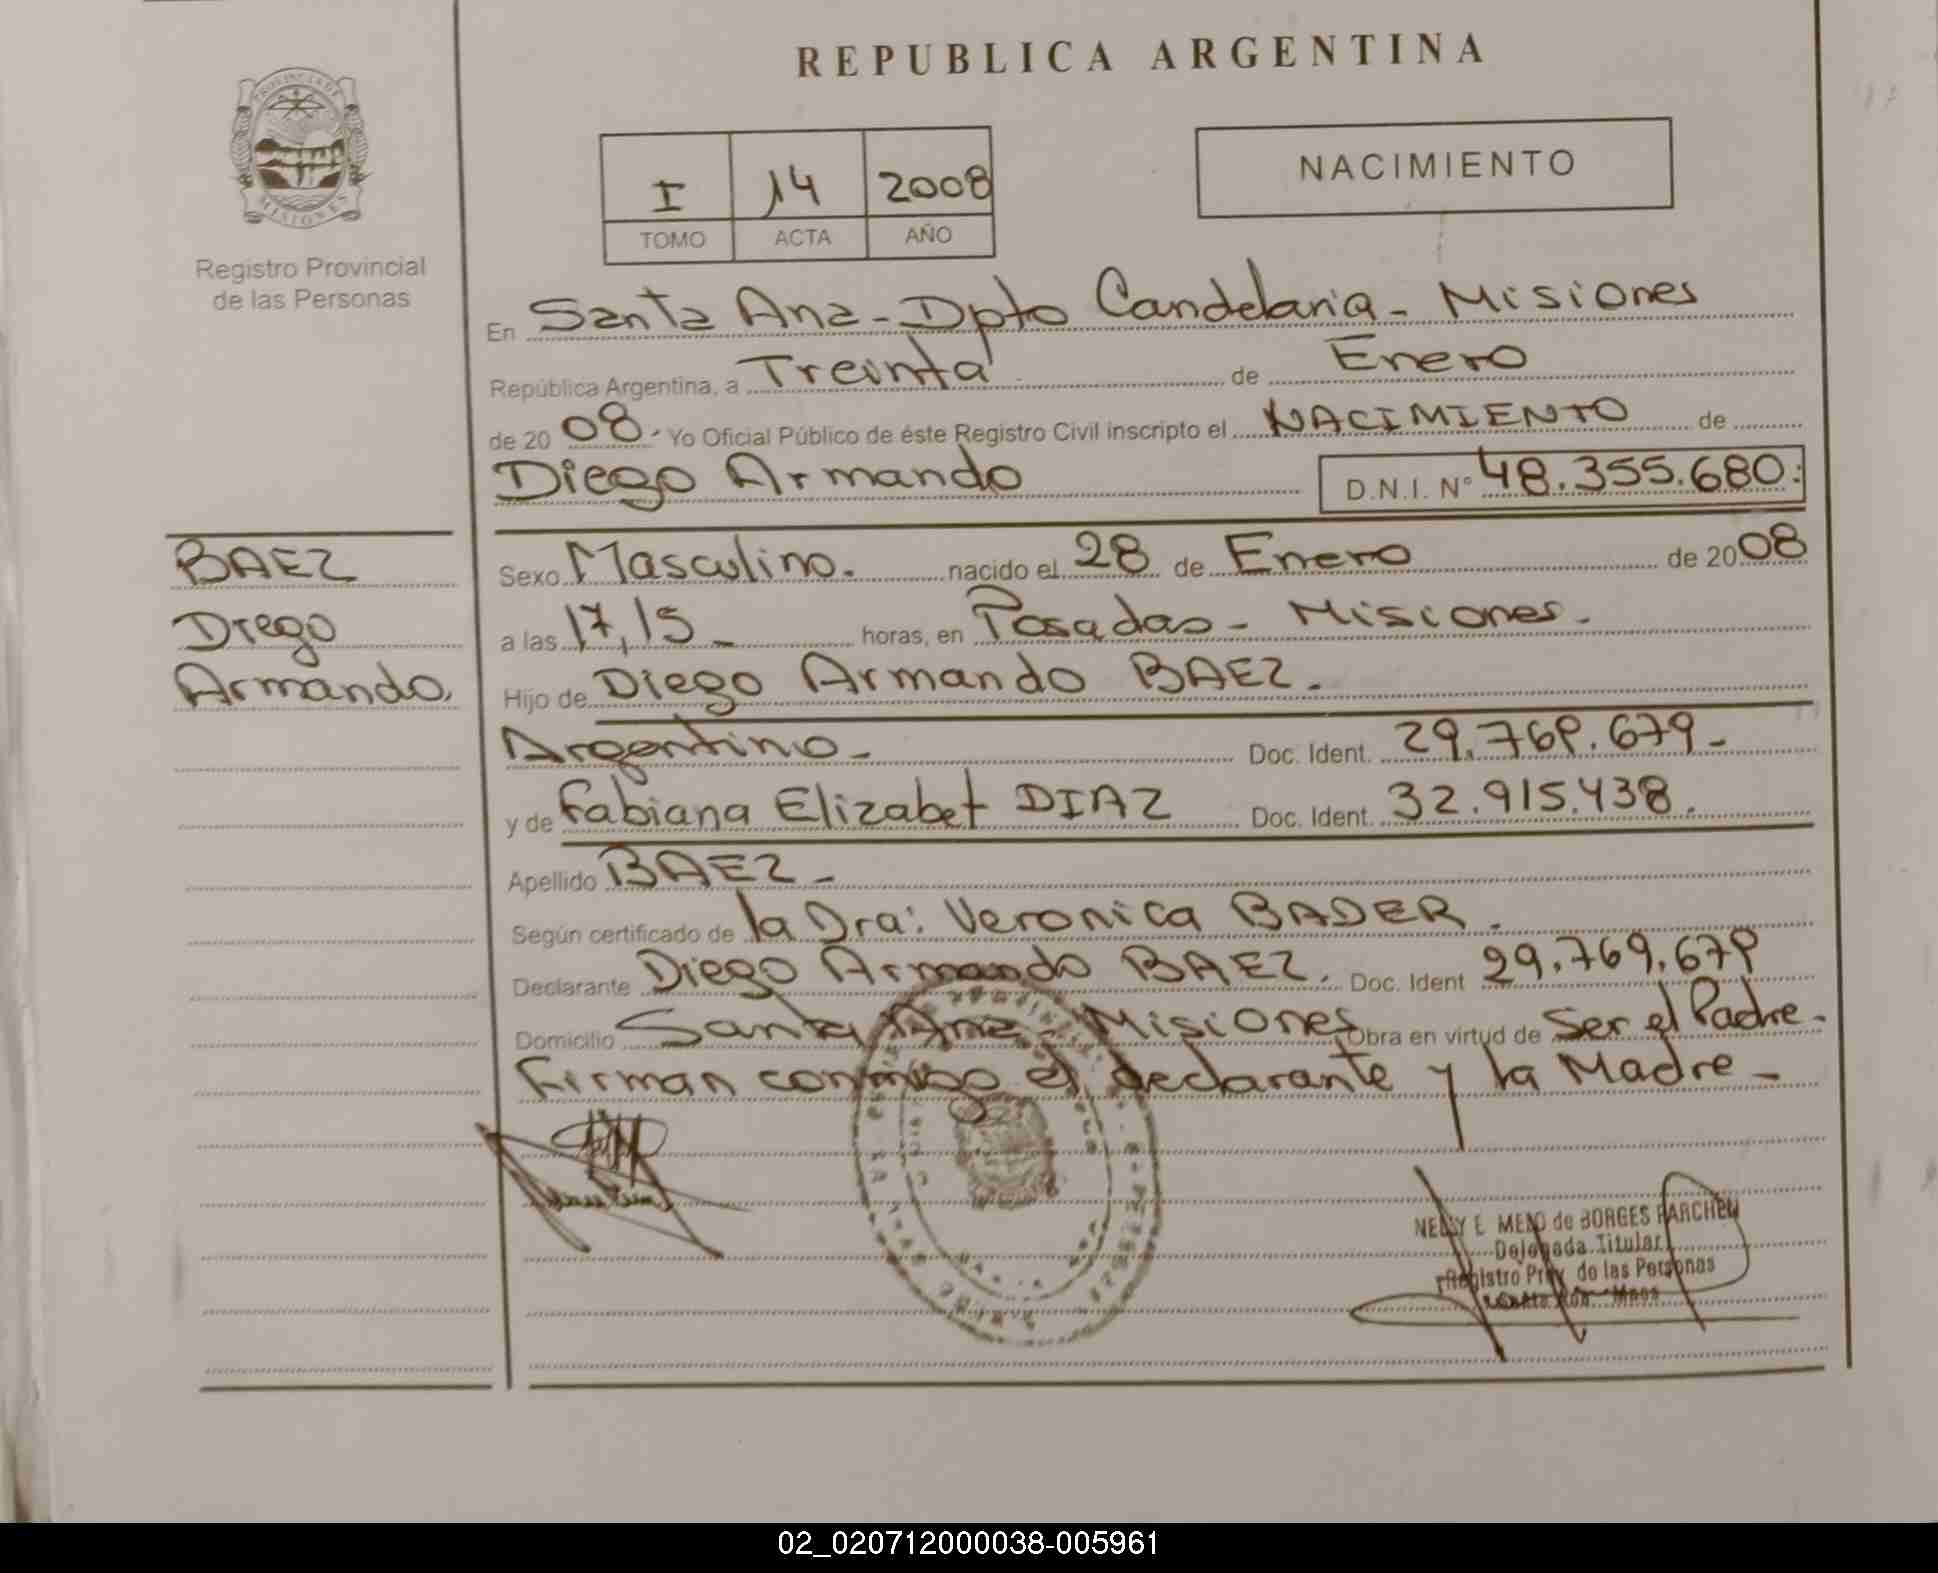 REPUBLICA ARGENTINA
PROVINCIA DE
MISIONES
Registro Provincial
de las Personas
I 14 2008
TOMO ACTA AÑO
NACIMIENTO
En Santa Ana - Dpto Candelaria - Misiones
República Argentina, a Treinta de Enero
de 20 08. Yo Oficial Público de éste Registro Civil inscripto el NACIMIENTO de
Diego Armando D.N.I. N° 48.355.680.
BAEZ
Diego
Armando.
Sexo Masculino. nacido el 28 de Enero de 20 08
a las 17,15 - horas, en Posadas - Misiones -
Hijo de Diego Armando BAEZ.
Argentino - Doc. Ident. 29.769.679 -
y de Fabiana Elizabet DIAZ Doc. Ident. 32.915.438.
Apellido BAEZ -
Según certificado de la Dra: Veronica BADER.
Declarante Diego Armando BAEZ. Doc. Ident 29.769.679
Domicilio Santa Ana - Misiones Obra en virtud de Ser el Padre.
Firman conmigo el declarante y la Madre -
NELLY E. MELO de BORGES
Delegada Titular
Registro Prov. de las Personas
Santa Ana - Mnes
02_020712000038-005961